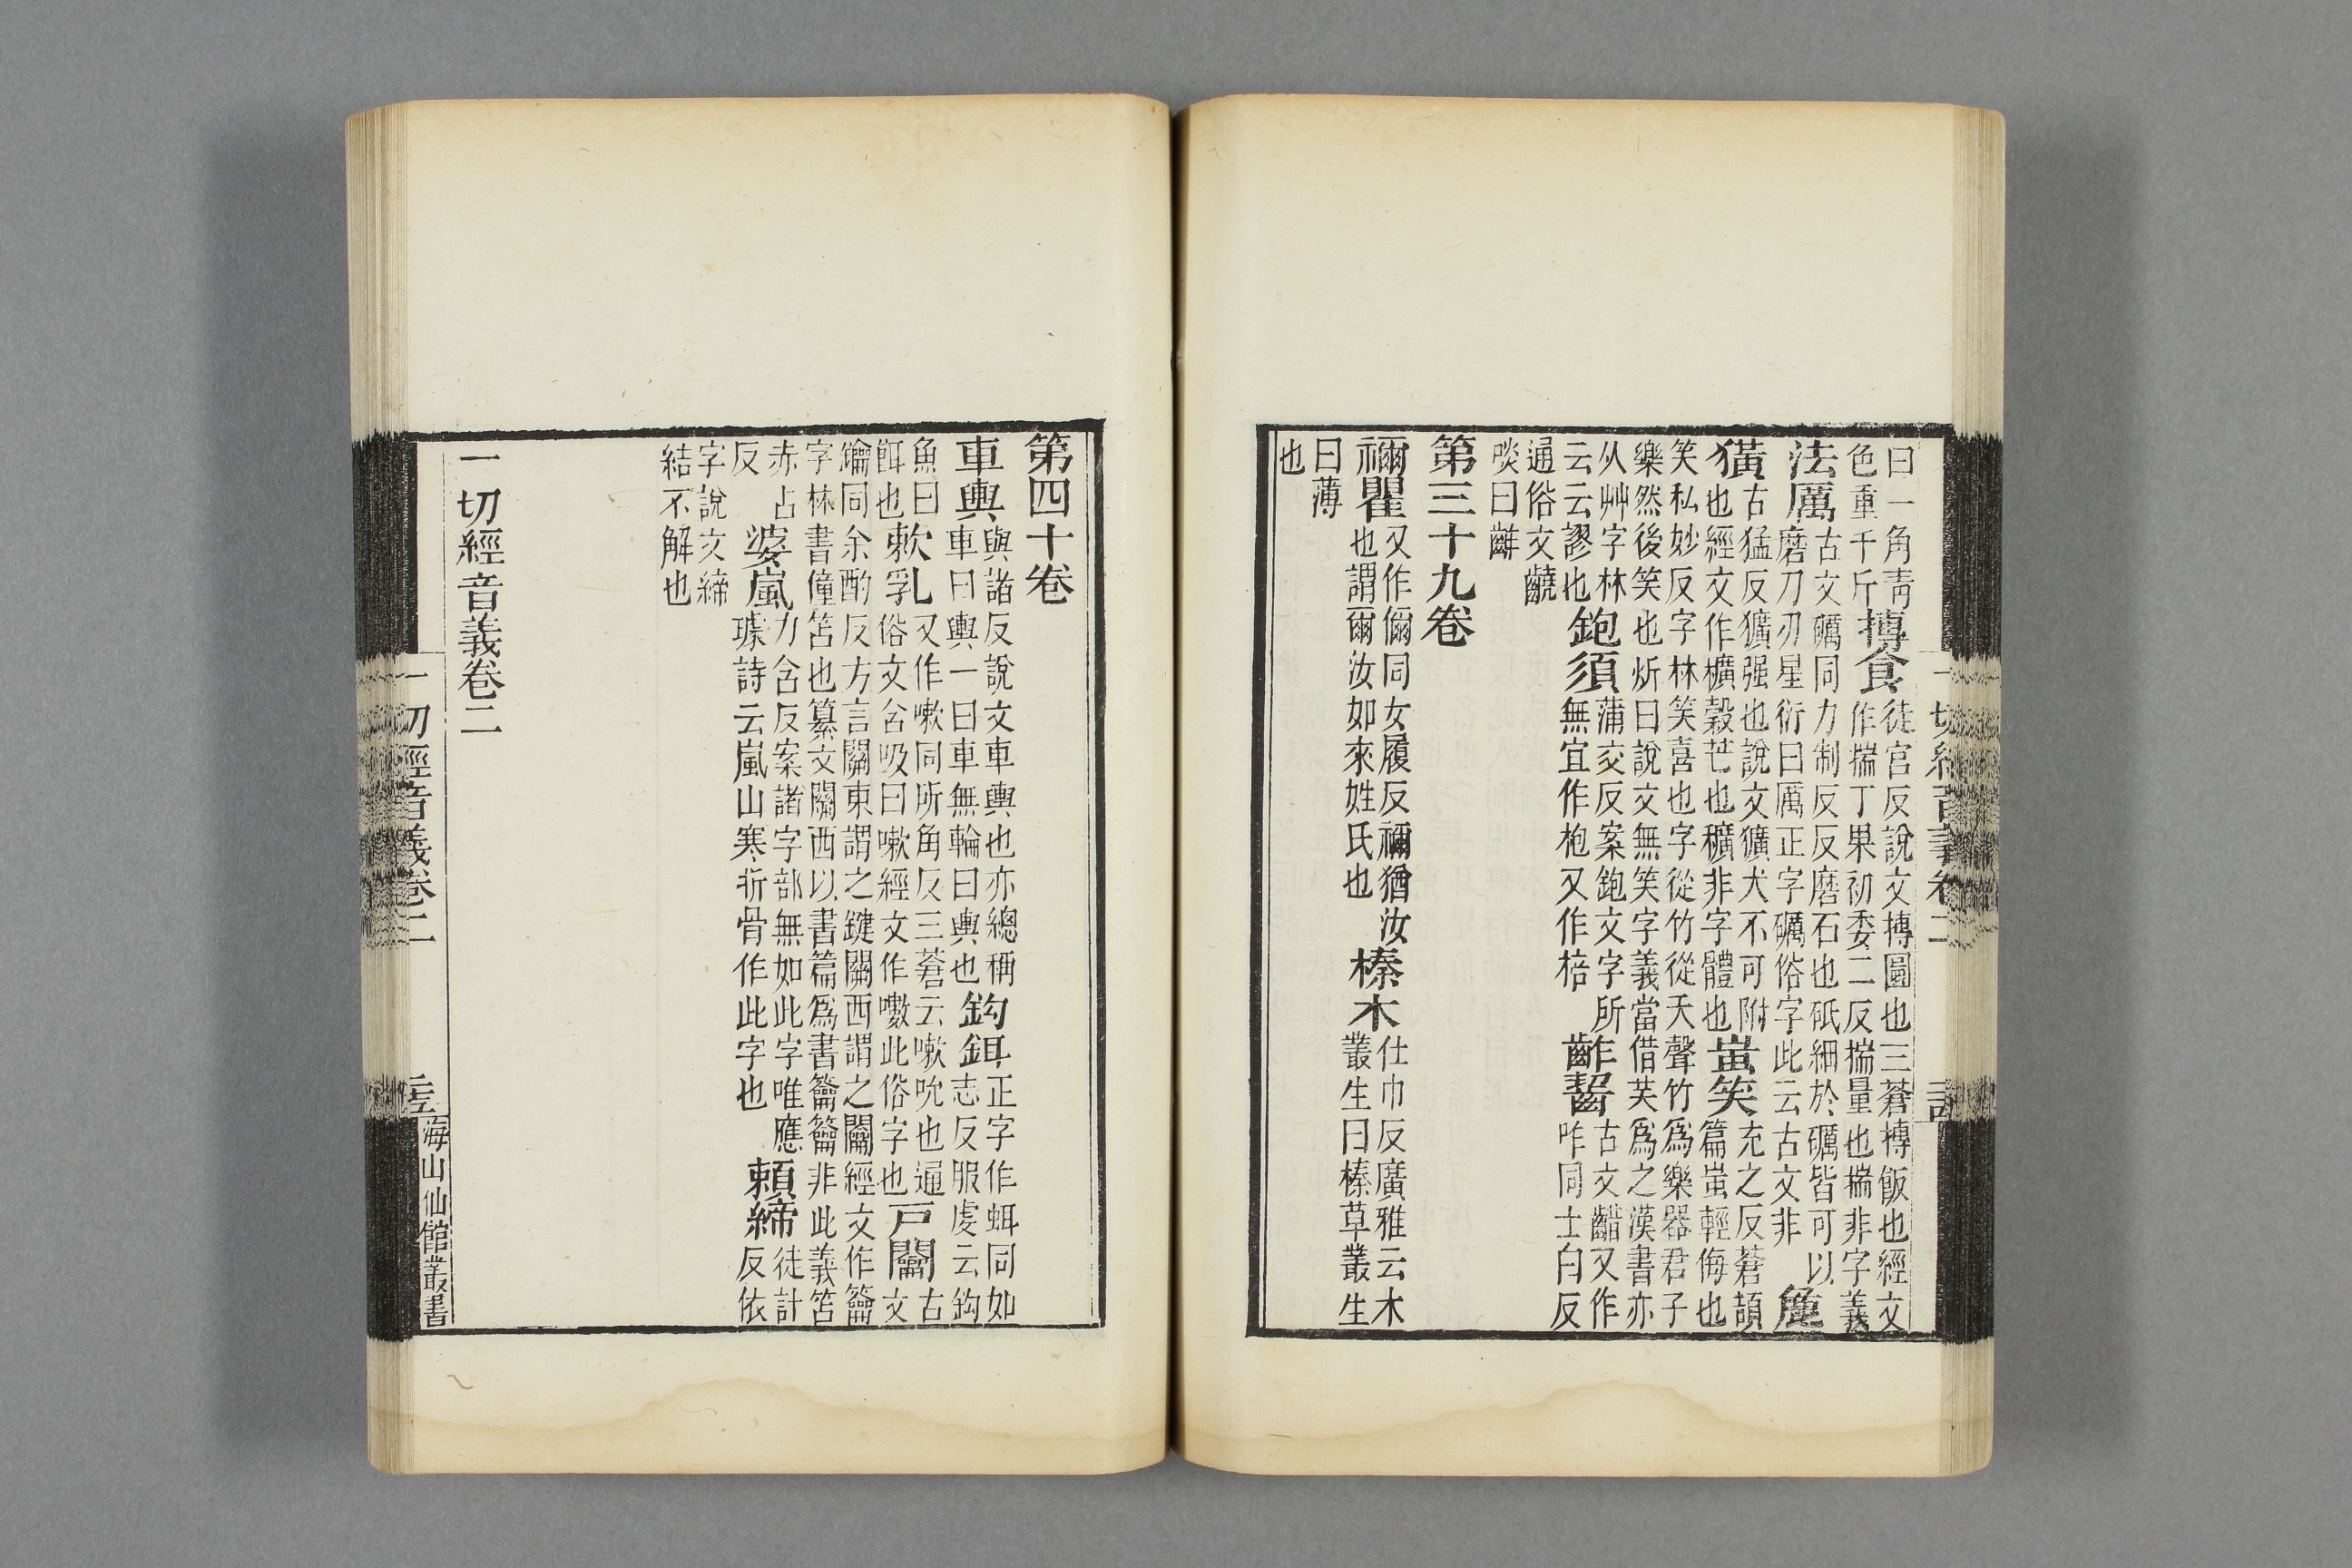 一切經音義卷二
曰一角靑色重千斤摶食徒官反說文摶圜也三蒼摶飯也經文作揣丁果初委二反揣量也揣非字義
法厲古文礪同力制反反磨石也砥細於礪皆可以磨刀刃星衍曰厲正字礪俗字此云古文非麁
獷古猛反獷强也說文獷犬不可附也經文作櫎穀芒也穬非字體也蚩笑充之反蒼頡篇蚩輕侮也
笑私妙反字林笑喜也字從竹從夭聲竹爲樂器君子樂然後笑也炘曰說文無笑字義當借芺爲之漢書亦
从艸字林云云謬也鉋須蒲交反案鉋文字所無宜作枹又作棓齚齧古文齰又作咋同士白反
通俗文啖曰
第三十九卷
禰瞿又作儞同女履反禰猶汝也謂爾汝如來姓氏也榛木仕巾反廣雅云木叢生曰榛草叢生
曰薄也
第四十卷
車輿與諸反說文車輿也亦總稱車曰輿一曰車無輪曰輿也鉤鉺正字作同如志反服虔云鉤
魚曰餌也欶乳又作嗽同所角反三蒼云嗽吮也通俗文含吸曰嗽經文作此俗字也戶𨷲古文
鑰同余酌反方言關東謂之鍵關西謂之𨷲經文作籥字林書僮笘也纂文關西以書篇爲書籥籥非此義笘
赤占反婆嵐力含反案諸字部無如此字唯應璩詩云嵐山寒折骨作此字也賴締徒計反依
字說文締結不解也
一切經音義卷二
一切經音義卷二
海山仙館叢書